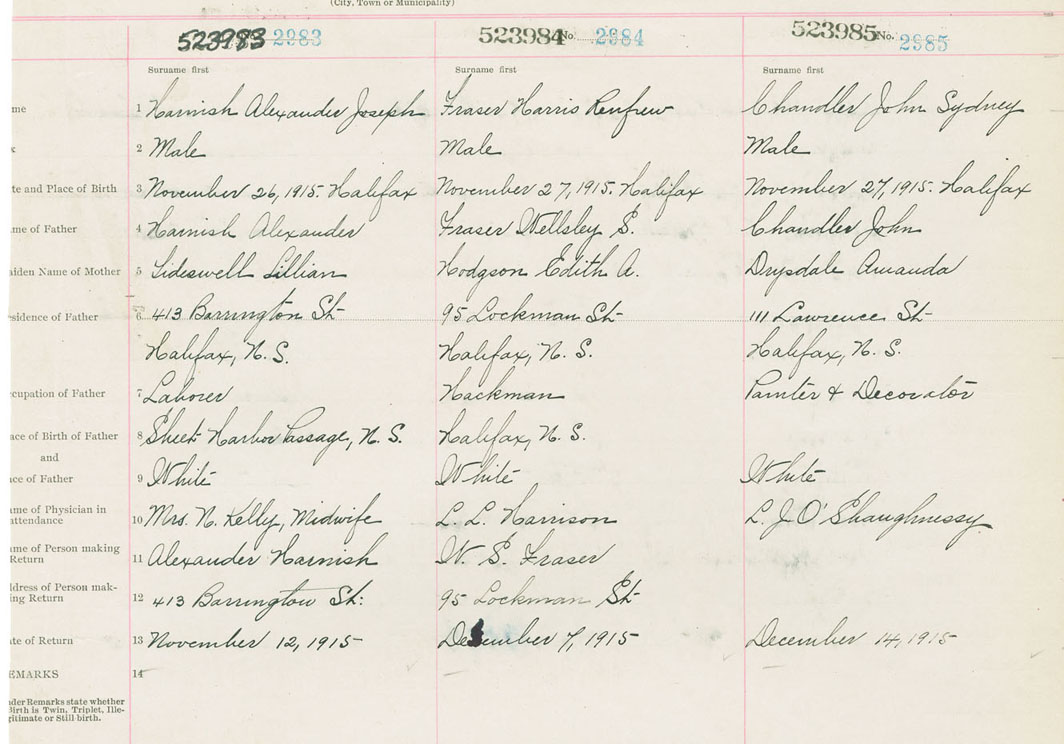 (City, Town or Municipality)
523983 2983
523984 No. 2984
523985 No. 2985
Surname first Surname first Surname first
me 1 Harnish Alexander Joseph Fraser Harris Renfrew Chandler John Sydney
x 2 Male Male Male
te and Place of Birth 3 November 26, 1915. Halifax November 27, 1915. Halifax November 27, 1915. Halifax
me of Father 4 Harnish Alexander Fraser Wellsley S. Chandler John
aiden Name of Mother 5 Sideswell Lillian Hodgson Edith A. Drysdale Amanda
sidence of Father 6 413 Barrington St 95 Lockman St 111 Lawrence St
Halifax, N. S. Halifax, N. S. Halifax, N. S.
cupation of Father 7 Laborer Hackman Painter & Decorator
ace of Birth of Father 8 Sheet Harbor Passage, N. S. Halifax, N. S.
and
ce of Father 9 White White White
ame of Physician in
attendance 10 Mrs. N. Kelly, Midwife L. L. Harrison L. J. O'Shaughnessy
ame of Person making
Return 11 Alexander Harnish W. S. Fraser
ddress of Person mak-
ing Return 12 413 Barrington St: 95 Lockman St
te of Return 13 November 12, 1915 December 7, 1915 December 14, 1915
EMARKS 14
der Remarks state whether
Birth is Twin, Triplet, Ille-
gitimate or Still-birth.